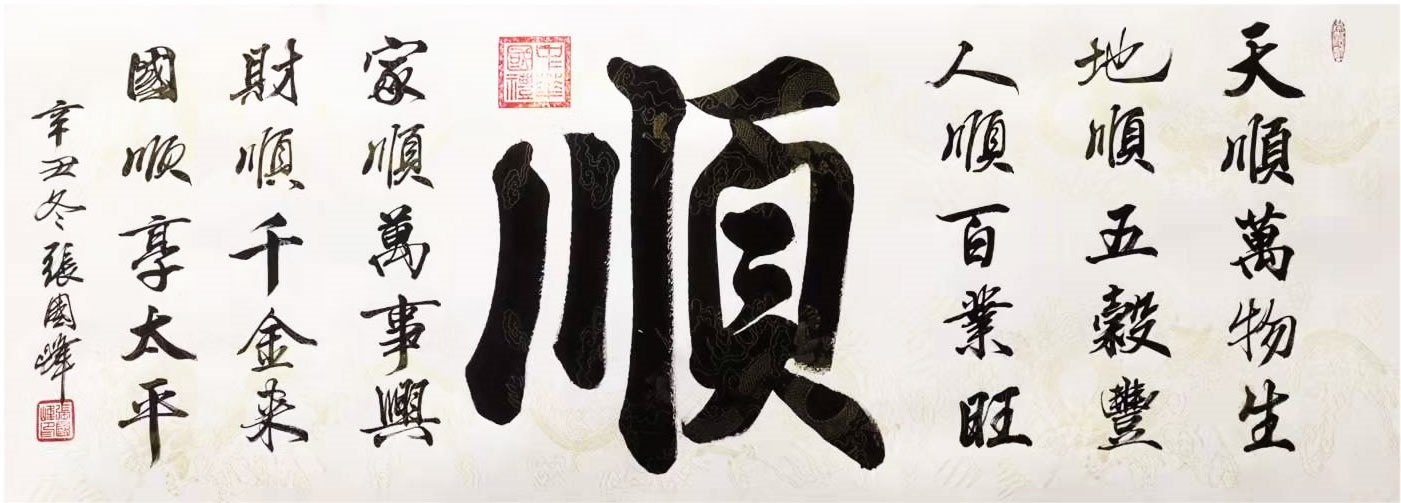 天順萬物生
地順五穀豐
人順百業旺
順
中華國禮
家順萬事興
財順千金來
國順享太平
辛丑冬張國峰